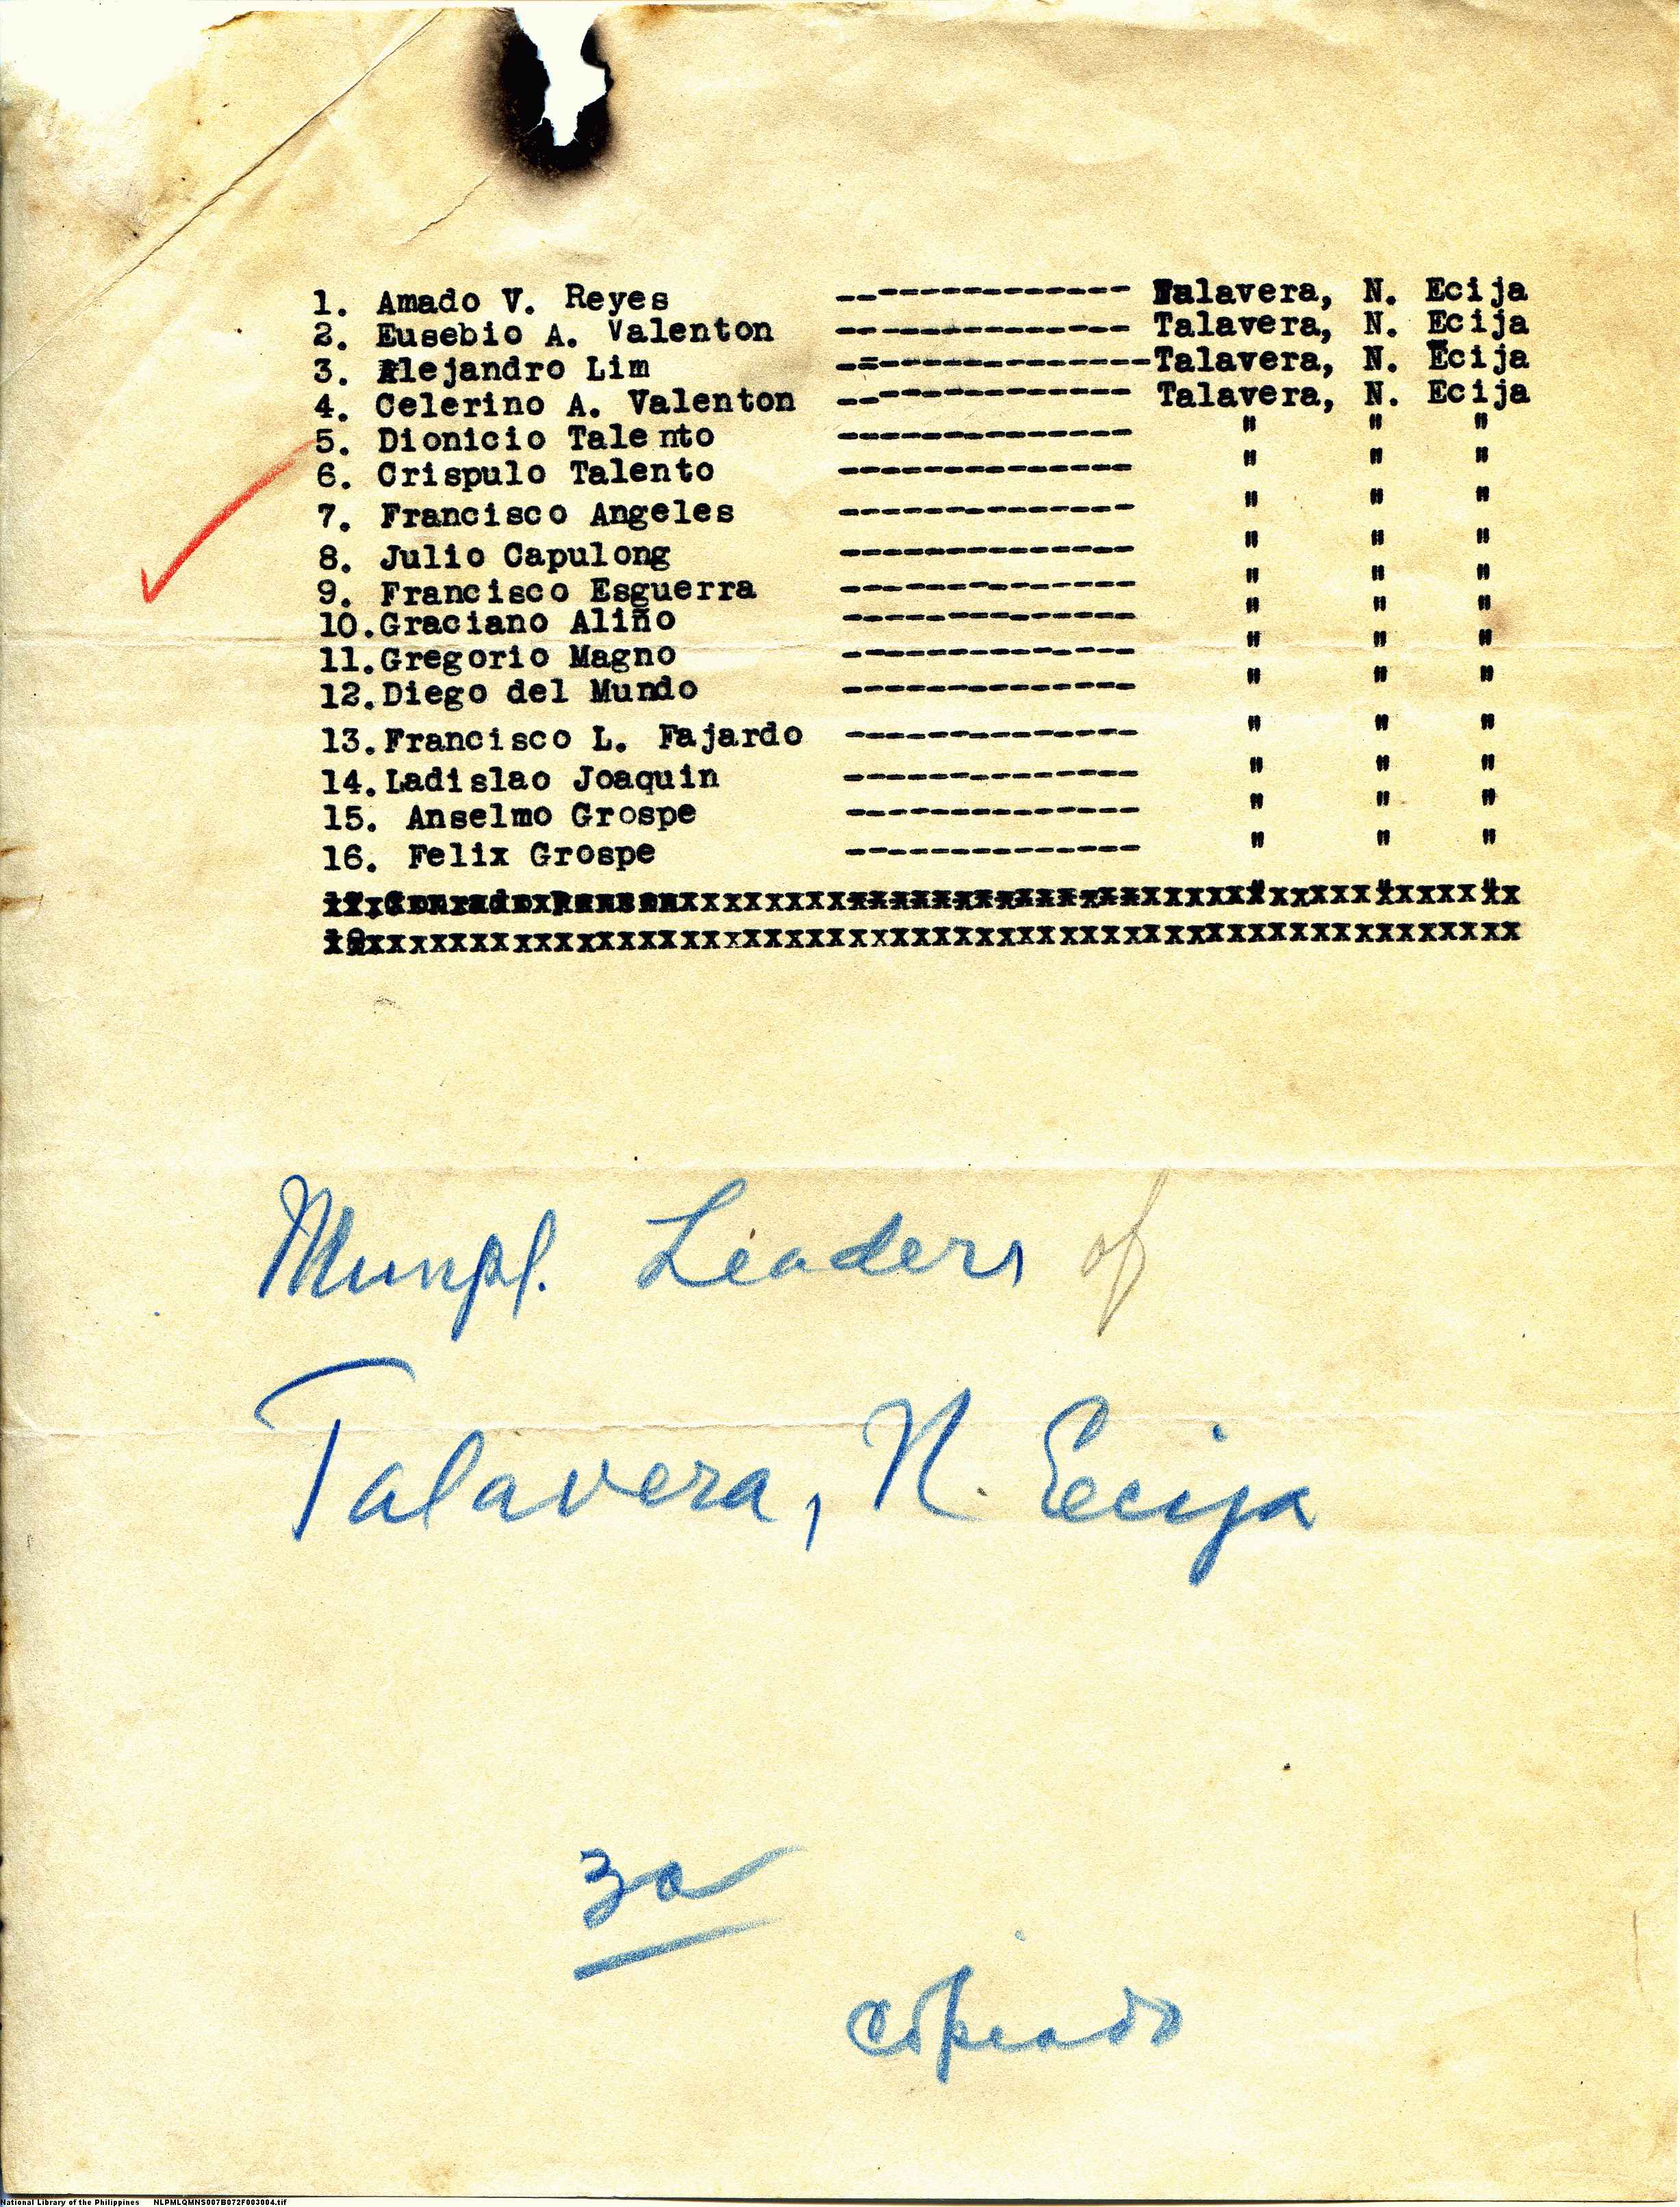 1. Amado V. Reyes -------------- Talavera, N. Ecija
2. Eusebio A. Valenton -------------- Talavera, N. Ecija
3. Alejandro Lim ---------------Talavera, N. Ecija
4. Celerino A. Valenton -------------- Talavera, N. Ecija
5. Dionicio Talento -------------- " " "
6. Crispulo Talento -------------- " " "
7. Francisco Angeles -------------- " " "
8. Julio Capulong -------------- " " "
9. Francisco Esguerra -------------- " " "
10.Graciano Aliño -------------- " " "
11.Gregorio Magno -------------- " " "
12.Diego del Mundo -------------- " " "
13.Francisco L. Fajardo -------------- " " "
14.Ladislao Joaquin -------------- " " "
15. Anselmo Grospe -------------- " " "
16. Felix Grospe -------------- " " "
Munpl. Leaders of
Talavera, N. Ecija
copiado
National Library of the Philippines NLPMLQMNS007B072F003004.tif